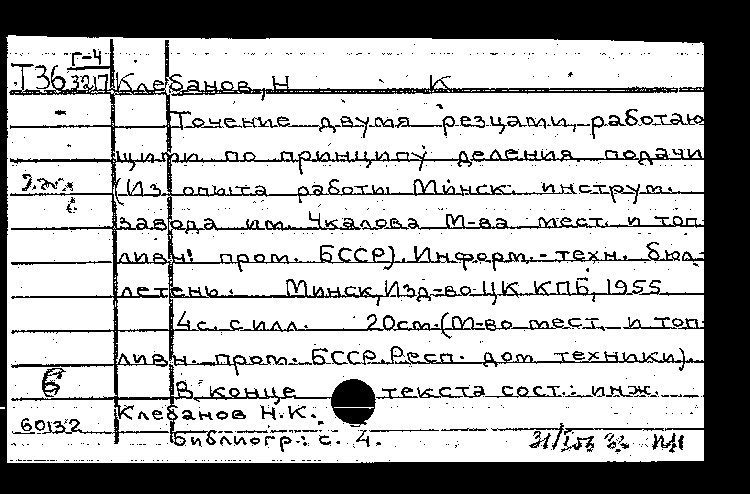 Г-4
Т36 3217 Клебанов, Н К
Точение двумя резцами, работаю
щими по принципу деления подачи
2 экз
(Из опыта работы Минск. инструм.
завода им. Чкалова М-ва мест. и топ-
ливн. пром. БССР). Информ.-техн. бюл-
летень. Минск, Изд-во ЦК КПБ, 1955
4с. с илл. 20см. (М-во мест. и топ-
ливн. пром. БССР. Респ. дом техники).
Б В конце текста сост.: инж.
Клебанов Н.К.
60132 Библиогр.: с. 4.